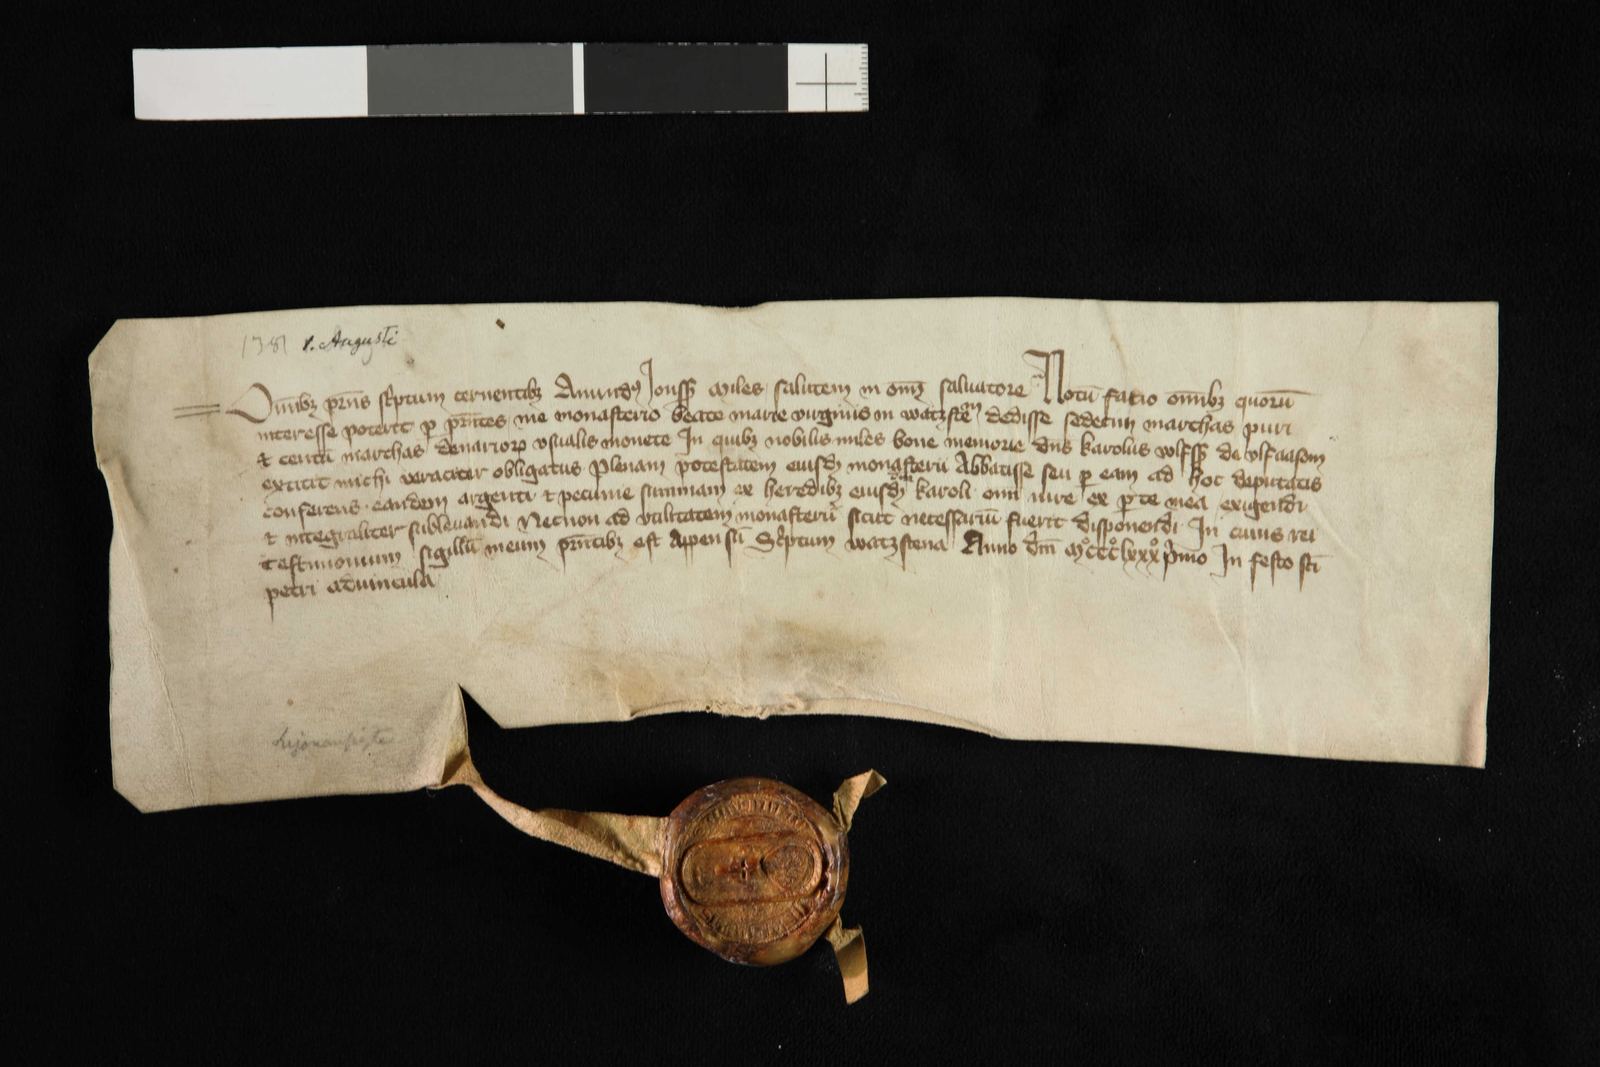 1381 1. Augusti
Omibꝫ p̄ns sc̓ptum cernentibꝫ Amundꝰ Jonss̄ miles salutem in om̄i saluatore Notū facio om̄ibꝫ quorū
interesse poterit ꝑ p̄ntes me monasterio beate marie virginis in watzsten̄ dedisse sedecim marchas puri
et centū marchas denarioꝝ vsualis monete In quibꝫ nobilis miles bone memorie dn̄s karolus vlfss̄ de vlfaasom
extitit michi veraciter obligatus plenam potestatem eiusd̄ monasterii Abbatisse seu ꝑ eam ad hoc deputatis
conferens eandem argenti et pecunie summam ex heredibꝫ eiusd̄ dn̄i karoli om̄i iure ex ꝑte mea exigendi
et integraliter subleuandi Necnon ad vtilitatem monasterii sicut necessariū fuerit disponendi In cuius rei
testimonium sigillū meum p̄ntibꝫ est appensū Sc̓ptum watzstena Anno dn̄i mͦcccͦlxxxͦp̓mo In festo sc̄i
petri aduincula